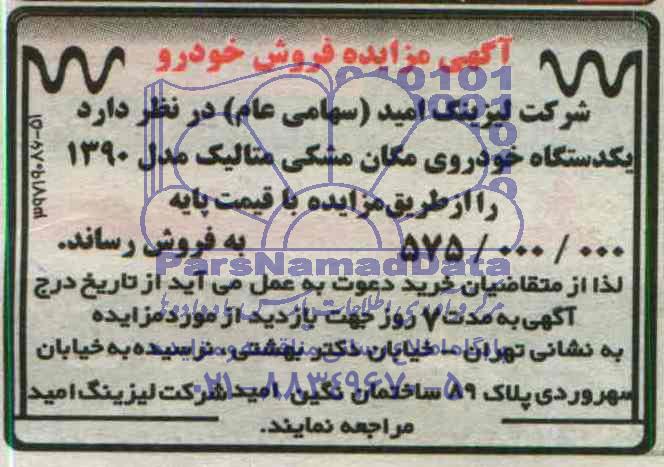 آگهی مزایده فروش خودرو
شرکت لیزینگ امید (سهامی عام) در نظر دارد
یکدستگاه خودروی مگان مشکی متالیک مدل ۱۳۹۰
را از طریق مزایده با قیمت پایه
۵۷۵/۰۰۰/۰۰۰ به فروش رساند.
ParsNamadData
لذا از متقاضیان خرید دعوت به عمل می آید از تاریخ درج
آگهی به مدت ۷ روز جهت بازدید از مورد مزایده
به نشانی تهران - خیابان دکتر بهشتی نرسیده به خیابان
سهروردی پلاک ۸۹ ساختمان نگین امید شرکت لیزینگ امید
مراجعه نمایند.
۰۲۱-۸۸۳۴۹۶۷۰-۵